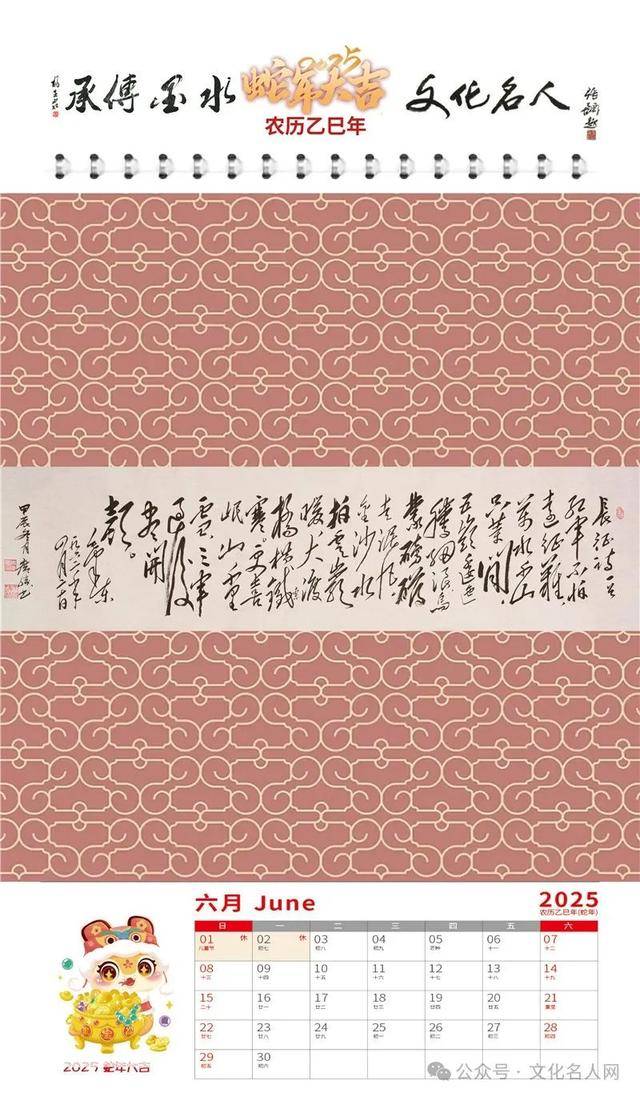 承傳墨水
2025
蛇年大吉
文化名人
农历乙巳年
長征詩一首
紅軍不怕
遠征難
萬水千山
只等閒
五嶺逶迤
騰細浪烏
蒙磅礴
走泥丸
金沙水
拍雲崖
暖大渡
橋橫鐵
索寒。更喜
岷山千里
雪三軍
過後
盡開
顏。
毛澤東
一九六二年
四月二十日
六月 June
2025
农历乙巳年(蛇年)
日 一 二 三 四 五 六
01 休 02 休 03 04 05 06 07
儿童节 初七 初八 初九 芒种 十一 十二
08 09 10 11 12 13 14
十三 十四 十五 十六 十七 十八 十九
15 16 17 18 19 20 21
二十 廿一 廿二 廿三 廿四 廿五 夏至
22 23 24 25 26 27 28
廿七 廿八 廿九 初二 初三 初四
29 30
初五 初六
2025 蛇年大吉
公众号·文化名人网